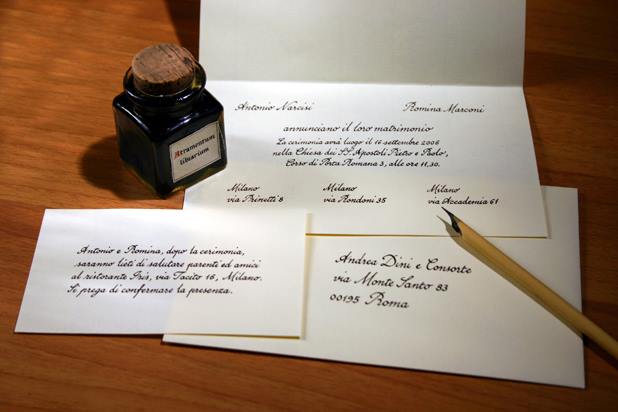 Atramentum
librarium
Antonio Narcisi
Romina Marconi
annunciano il loro matrimonio
La cerimonia avrà luogo il 16 settembre 2006
nella Chiesa dei SS. Apostoli Pietro e Paolo,
Corso di Porta Romana 3, alle ore 11,30.
Milano
via Prinetti 8
Milano
via Rondoni 35
Milano
via Accademia 61
Antonio e Romina, dopo la cerimonia,
saranno lieti di salutare parenti ed amici
al ristorante Iris, via Tacito 16, Milano.
Si prega di confermare la presenza.
Andrea Dini e Consorte
via Monte Santo 83
00195 Roma